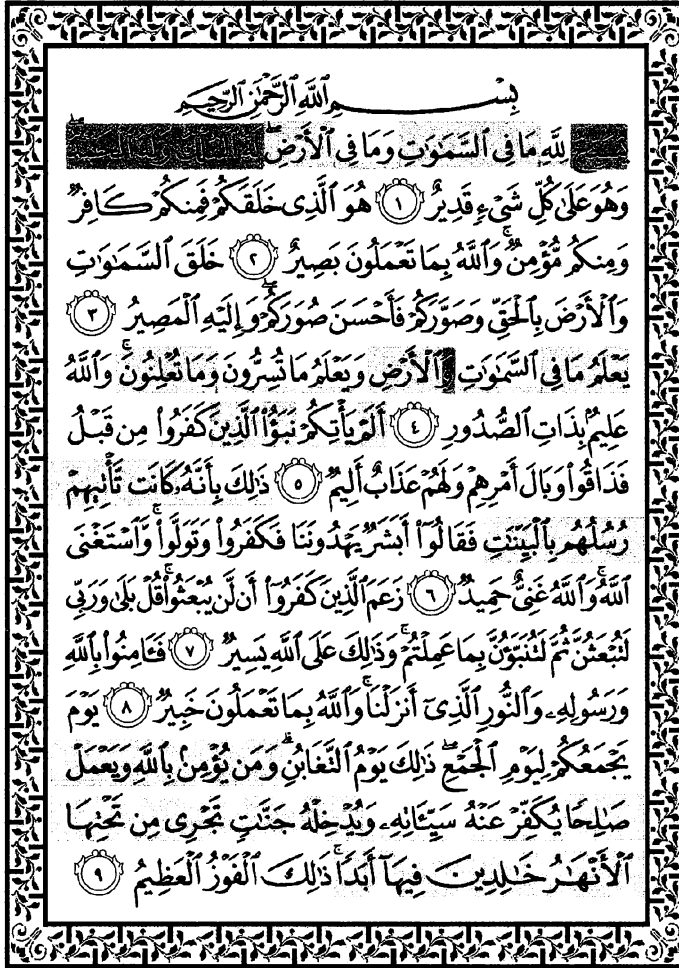 بِسْمِ ٱللَّهِ ٱلرَّحْمَٰنِ ٱلرَّحِيمِ
لِلَّهِ مَا فِي ٱلسَّمَٰوَٰتِ وَمَا فِي ٱلْأَرْضِ
وَهُوَ عَلَىٰ كُلِّ شَيْءٍ قَدِيرٌ ١ هُوَ ٱلَّذِي خَلَقَكُمْ فَمِنكُمْ كَافِرٌ
وَمِنكُم مُّؤْمِنٌ ۚ وَٱللَّهُ بِمَا تَعْمَلُونَ بَصِيرٌ ٢ خَلَقَ ٱلسَّمَٰوَٰتِ
وَٱلْأَرْضَ بِٱلْحَقِّ وَصَوَّرَكُمْ فَأَحْسَنَ صُوَرَكُمْ ۖ وَإِلَيْهِ ٱلْمَصِيرُ ٣
يَعْلَمُ مَا فِي ٱلسَّمَٰوَٰتِ ٱلْأَرْضِ وَيَعْلَمُ مَا تُسِرُّونَ وَمَا تُعْلِنُونَ ۚ وَٱللَّهُ
عَلِيمٌۢ بِذَاتِ ٱلصُّدُورِ ٤ أَلَمْ يَأْتِكُمْ نَبَؤُا۟ ٱلَّذِينَ كَفَرُوا۟ مِن قَبْلُ
فَذَاقُوا۟ وَبَالَ أَمْرِهِمْ وَلَهُمْ عَذَابٌ أَلِيمٌ ٥ ذَٰلِكَ بِأَنَّهُۥ كَانَت تَّأْتِيهِمْ
رُسُلُهُم بِٱلْبَيِّنَٰتِ فَقَالُوٓا۟ أَبَشَرٌ يَهْدُونَنَا فَكَفَرُوا۟ وَتَوَلَّوا۟ ۚ وَّٱسْتَغْنَى
ٱللَّهُ ۚ وَٱللَّهُ غَنِيٌّ حَمِيدٌ ٦ زَعَمَ ٱلَّذِينَ كَفَرُوٓا۟ أَن لَّن يُبْعَثُوا۟ ۚ قُلْ بَلَىٰ وَرَبِّي
لَتُبْعَثُنَّ ثُمَّ لَتُنَبَّؤُنَّ بِمَا عَمِلْتُمْ ۚ وَذَٰلِكَ عَلَى ٱللَّهِ يَسِيرٌ ٧ فَـَٔامِنُوا۟ بِٱللَّهِ
وَرَسُولِهِۦ وَٱلنُّورِ ٱلَّذِيٓ أَنزَلْنَا ۚ وَٱللَّهُ بِمَا تَعْمَلُونَ خَبِيرٌ ٨ يَوْمَ
يَجْمَعُكُمْ لِيَوْمِ ٱلْجَمْعِ ۖ ذَٰلِكَ يَوْمُ ٱلتَّغَابُنِ ۗ وَمَن يُؤْمِنۢ بِٱللَّهِ وَيَعْمَلْ
صَٰلِحًا يُكَفِّرْ عَنْهُ سَيِّـَٔاتِهِۦ وَيُدْخِلْهُ جَنَّٰتٍ تَجْرِي مِن تَحْتِهَا
ٱلْأَنْهَٰرُ خَٰلِدِينَ فِيهَآ أَبَدًا ۚ ذَٰلِكَ ٱلْفَوْزُ ٱلْعَظِيمُ ٩